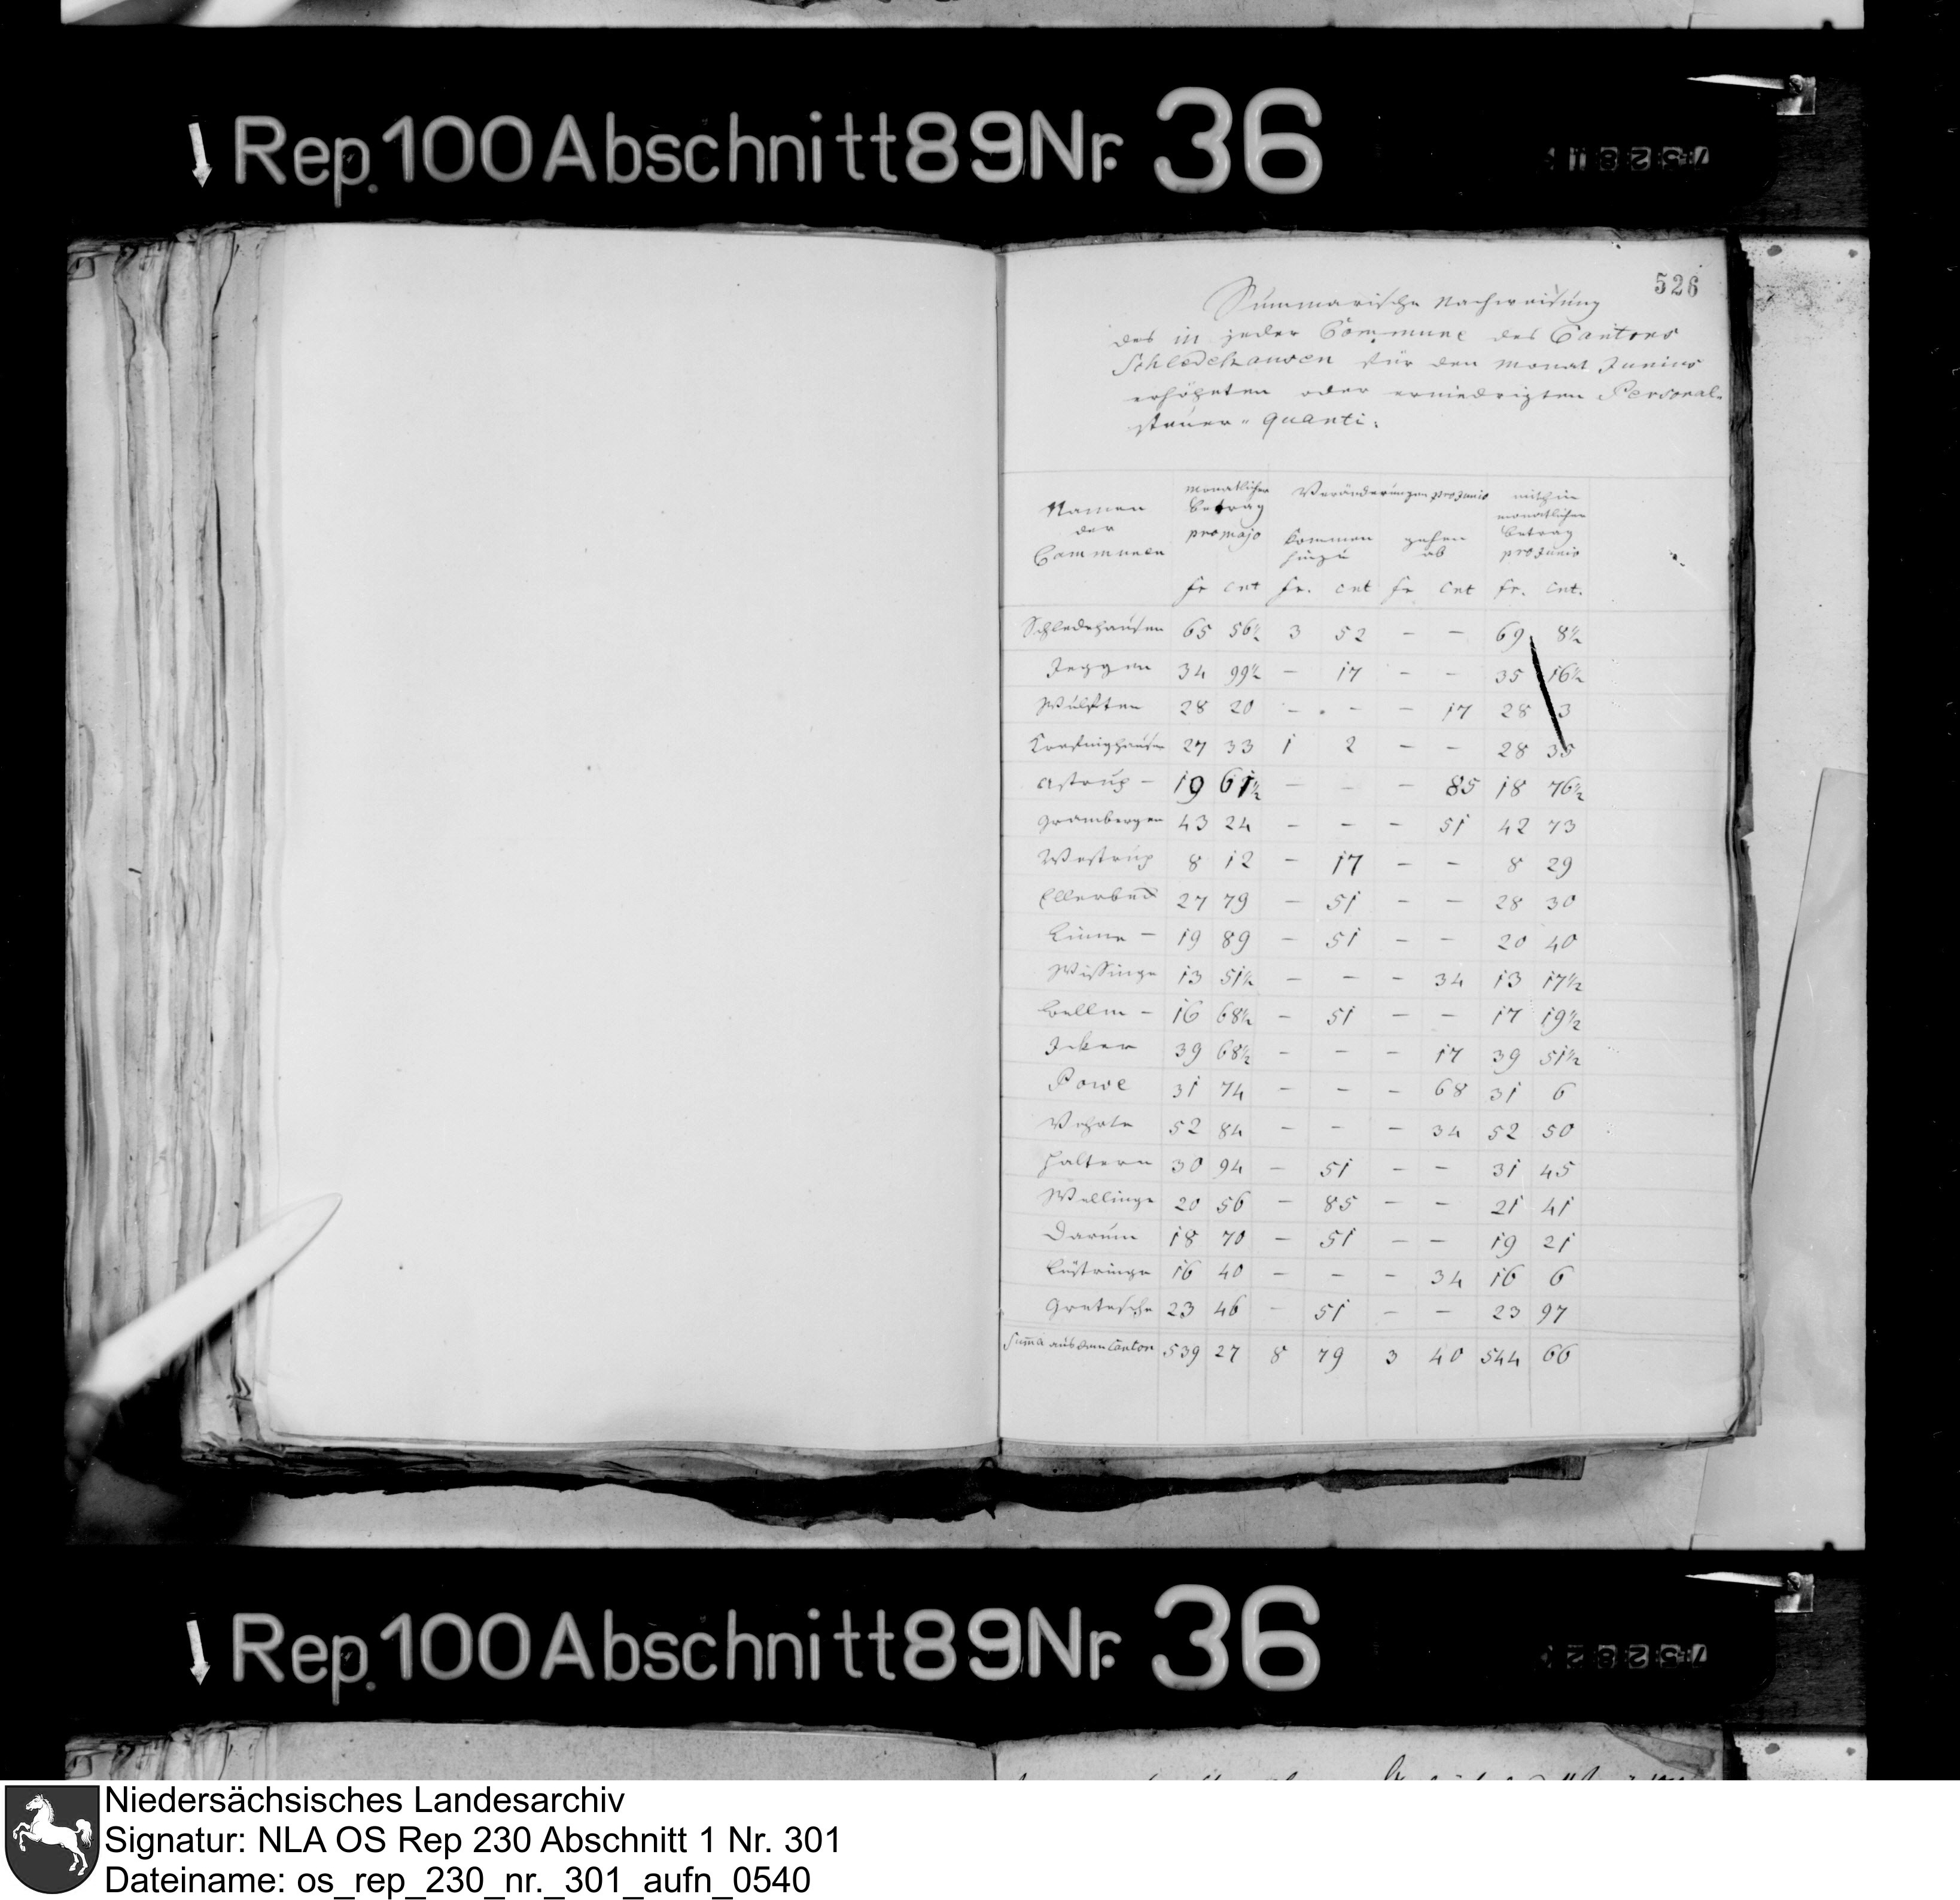 Rep. 100 Abschnitt 89 Nr. 36
526
Summarische Nachweisung
des in jeder Commune des Cantons
Schledehausen für den Monat Junius
erhöheten oder erniedrigten Personal-
steuer-Quanti.
Namen der Communen | monatlicher Betrag pro majo | Veränderungen pro Junio | mithin monatlicher Betrag pro Junio
kommen hinzu | gehen ab
fr cnt fr. cnt fr cnt fr. cnt.
Schledehausen 65 56½ 3 52 – – 69 8½
Jeggen 34 99½ – 17 – – 35 16½
Wulften 28 20 – – – 17 28 3
27 33 1 2 – – 28 35
Astrup – 19 61½ – – – 85 18 76½
Grambergen 43 24 – – – 51 42 73
Westrup 8 12 – 17 – – 8 29
Ellerbeck 27 79 – 51 – – 28 30
Linne – 19 89 – 51 – – 20 40
Wissinge 13 51½ – – – 34 13 17½
Bellm – 16 68½ – 51 – – 17 19½
Icker 39 68½ – – – 17 39 51½
Powe 31 74 – – – 68 31 6
Vehrte 52 84 – – – 34 52 50
Haltern 30 94 – 51 – – 31 45
Wellinge 20 56 – 85 – – 21 41
Darum 18 70 – 51 – – 19 21
Lüstringe 16 40 – – – 34 16 6
Gretesche 23 46 – 51 – – 23 97
Suma aus dem Canton 539 27 8 79 3 40 544 66
Rep. 100 Abschnitt 89 Nr. 36
Niedersächsisches Landesarchiv
Signatur: NLA OS Rep 230 Abschnitt 1 Nr. 301
Dateiname: os_rep_230_nr._301_aufn_0540